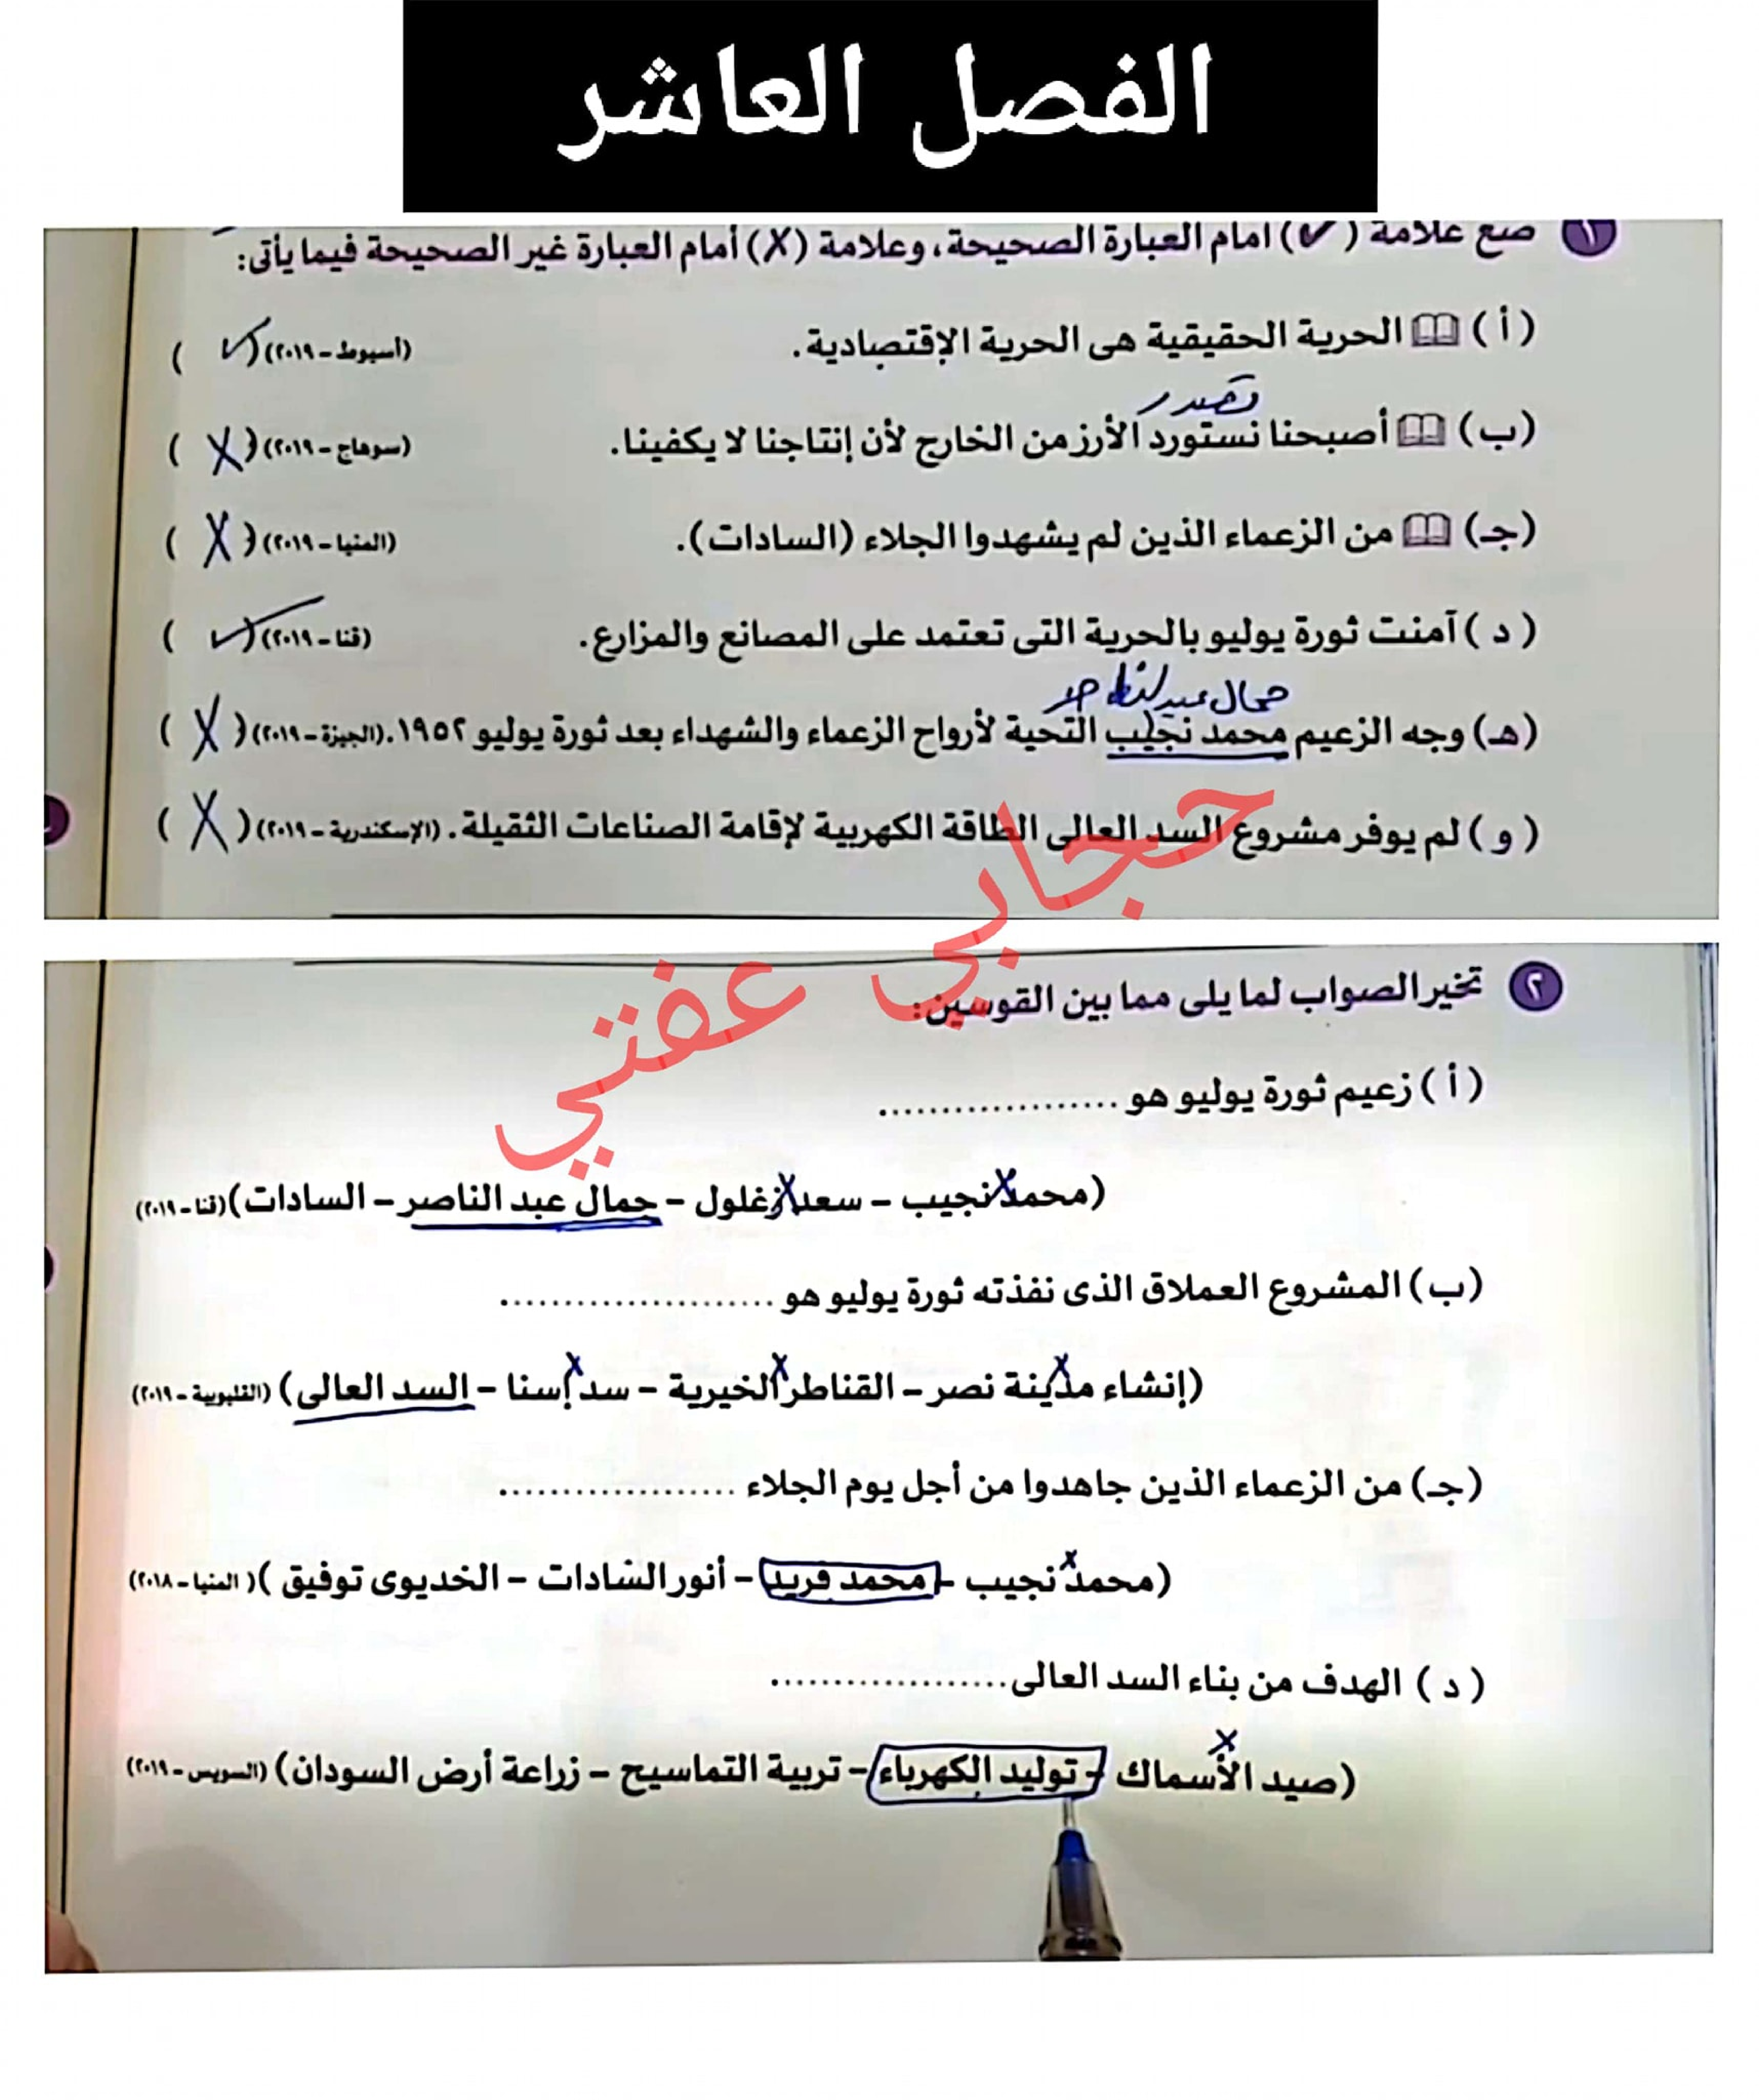 الفصل العاشر
١ ضع علامة (✓) أمام العبارة الصحيحة، وعلامة (X) أمام العبارة غير الصحيحة فيما يأتى:
(أ) الحرية الحقيقية هى الحرية الإقتصادية. (أسيوط - ٢٠١٩) (✓)
نصدر
(ب) أصبحنا نستورد الأرز من الخارج لأن إنتاجنا لا يكفينا. (سوهاج - ٢٠١٩) (X)
(جـ) من الزعماء الذين لم يشهدوا الجلاء (السادات). (المنيا - ٢٠١٩) (X)
(د) آمنت ثورة يوليو بالحرية التى تعتمد على المصانع والمزارع. (قنا - ٢٠١٩) (✓)
جمال عبد الناصر
(هـ) وجه الزعيم محمد نجيب التحية لأرواح الزعماء والشهداء بعد ثورة يوليو ١٩٥٢. (الجيزة - ٢٠١٩) (X)
(و) لم يوفر مشروع السد العالى الطاقة الكهربية لإقامة الصناعات الثقيلة. (الإسكندرية - ٢٠١٩) (X)
حجابي عفتي
٢ تخير الصواب لما يلى مما بين القوسين:
(أ) زعيم ثورة يوليو هو ...................
(محمد نجيب - سعد زغلول - جمال عبد الناصر - السادات) (قنا - ٢٠١٩)
(ب) المشروع العملاق الذى نفذته ثورة يوليو هو ......................
(إنشاء مدينة نصر - القناطر الخيرية - سد إسنا - السد العالى) (القليوبية - ٢٠١٩)
(جـ) من الزعماء الذين جاهدوا من أجل يوم الجلاء ...................
(محمد نجيب - محمد فريد - أنور السادات - الخديوى توفيق) (المنيا - ٢٠١٨)
(د) الهدف من بناء السد العالى...................
(صيد الأسماك - توليد الكهرباء - تربية التماسيح - زراعة أرض السودان) (السويس - ٢٠١٩)